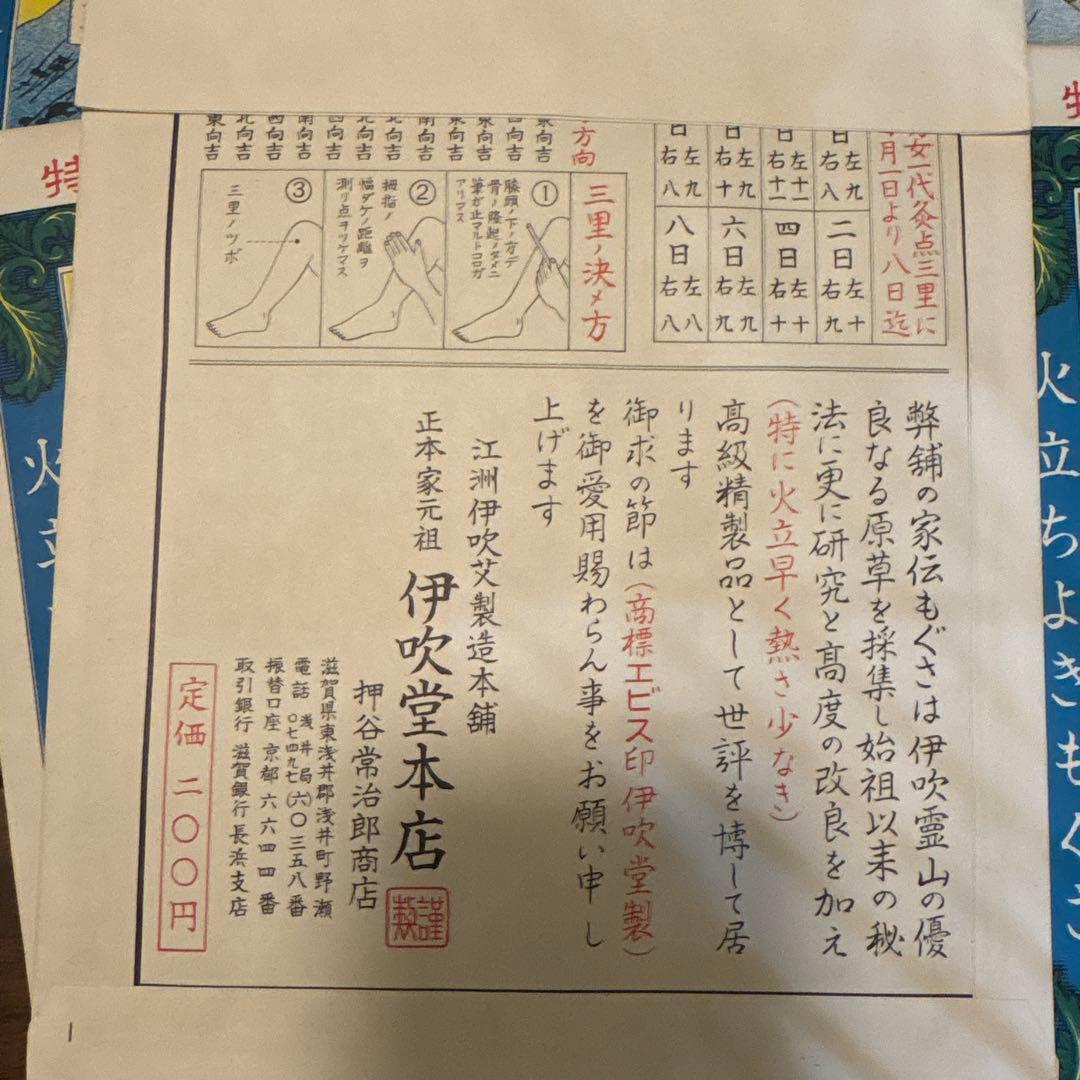 女一代灸点三里に
月一日より八日迄
左九 右八
左十一 右十一
左九 右十
左九 右八
二日 左十 右九
四日 左十 右十
六日 左九 右九
八日 左八 右八
方向
東向吉
西向吉
東向吉
東向吉
南向吉
北向吉
北向吉
西向吉
南向吉
西向吉
北向吉
東向吉
三里ノ決メ方
①
膝頭ノ下ノ方デ
骨ノ隆起ノタメニ
筆ガ止マルトコロガ
アリマス
②
拇指ノ
幅ダケノ距離ヲ
測リ点ヲツケマス
③
三里ノツボ
弊舗の家伝もぐさは伊吹霊山の優
良なる原草を採集し始祖以来の秘
法に更に研究と高度の改良を加え
(特に火立早く熱さ少なき)
高級精製品として世評を博して居
ります
御求の節は(商標エビス印伊吹堂製)
を御愛用賜わらん事をお願い申し
上げます
江洲伊吹艾製造本舗
正本家元祖 伊吹堂本店
押谷常治郎商店
謹製
滋賀県東浅井郡浅井町野瀬
電話 浅井局 〇七四九七(六)〇三五八番
振替口座 京都六六四四番
取引銀行 滋賀銀行長浜支店
定価 二〇〇円
特
火立
特
火立ちよきもぐさ